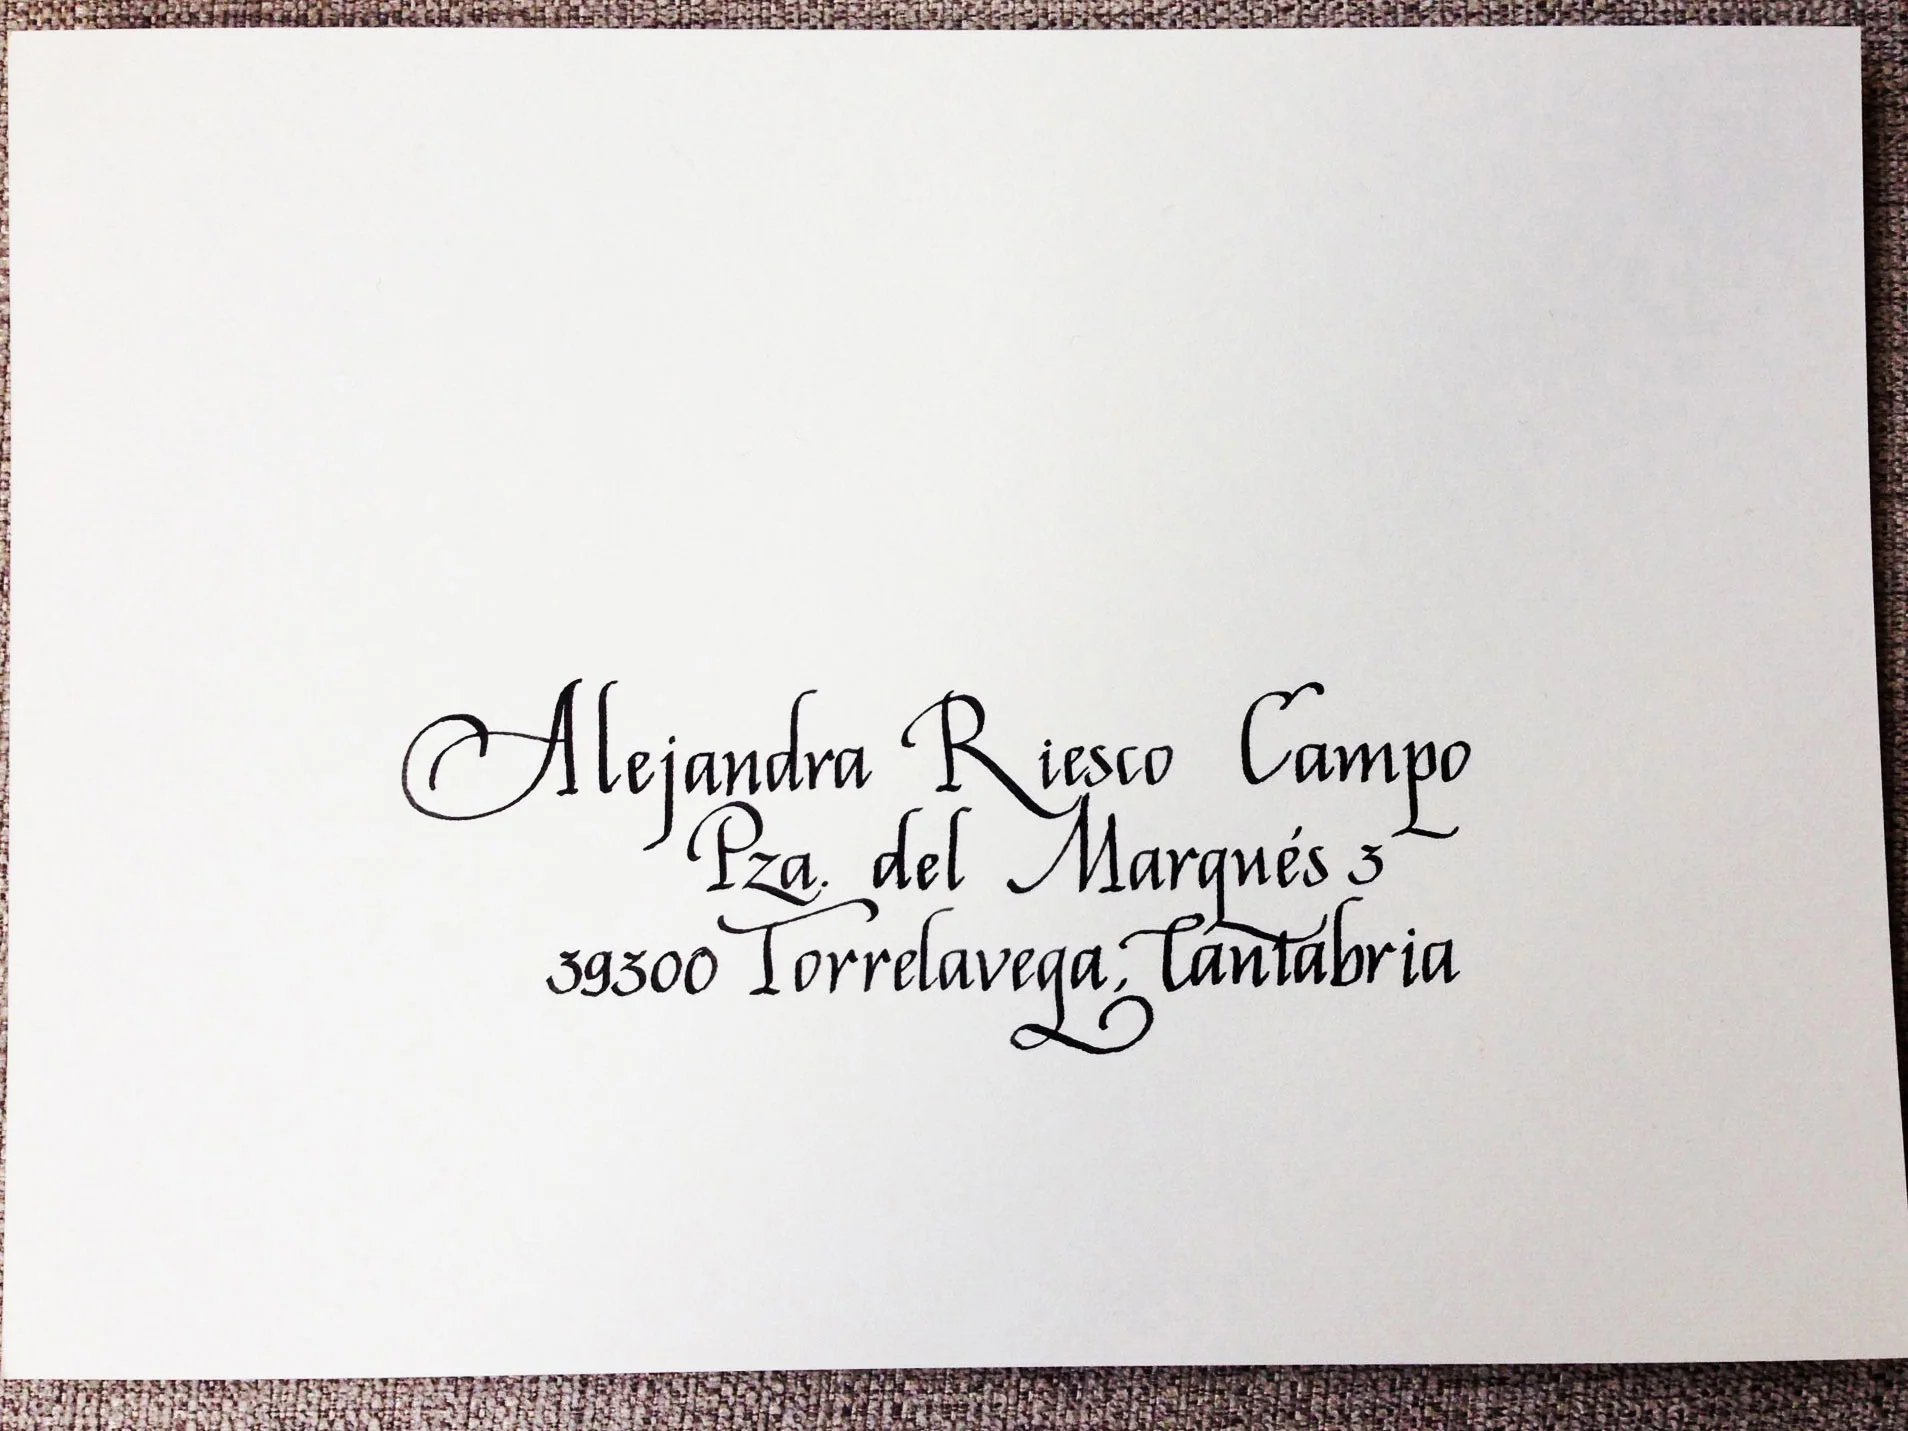 Alejandra Riesco Campo
Pza. del Marqués 3
39300 Torrelavega, Cantabria